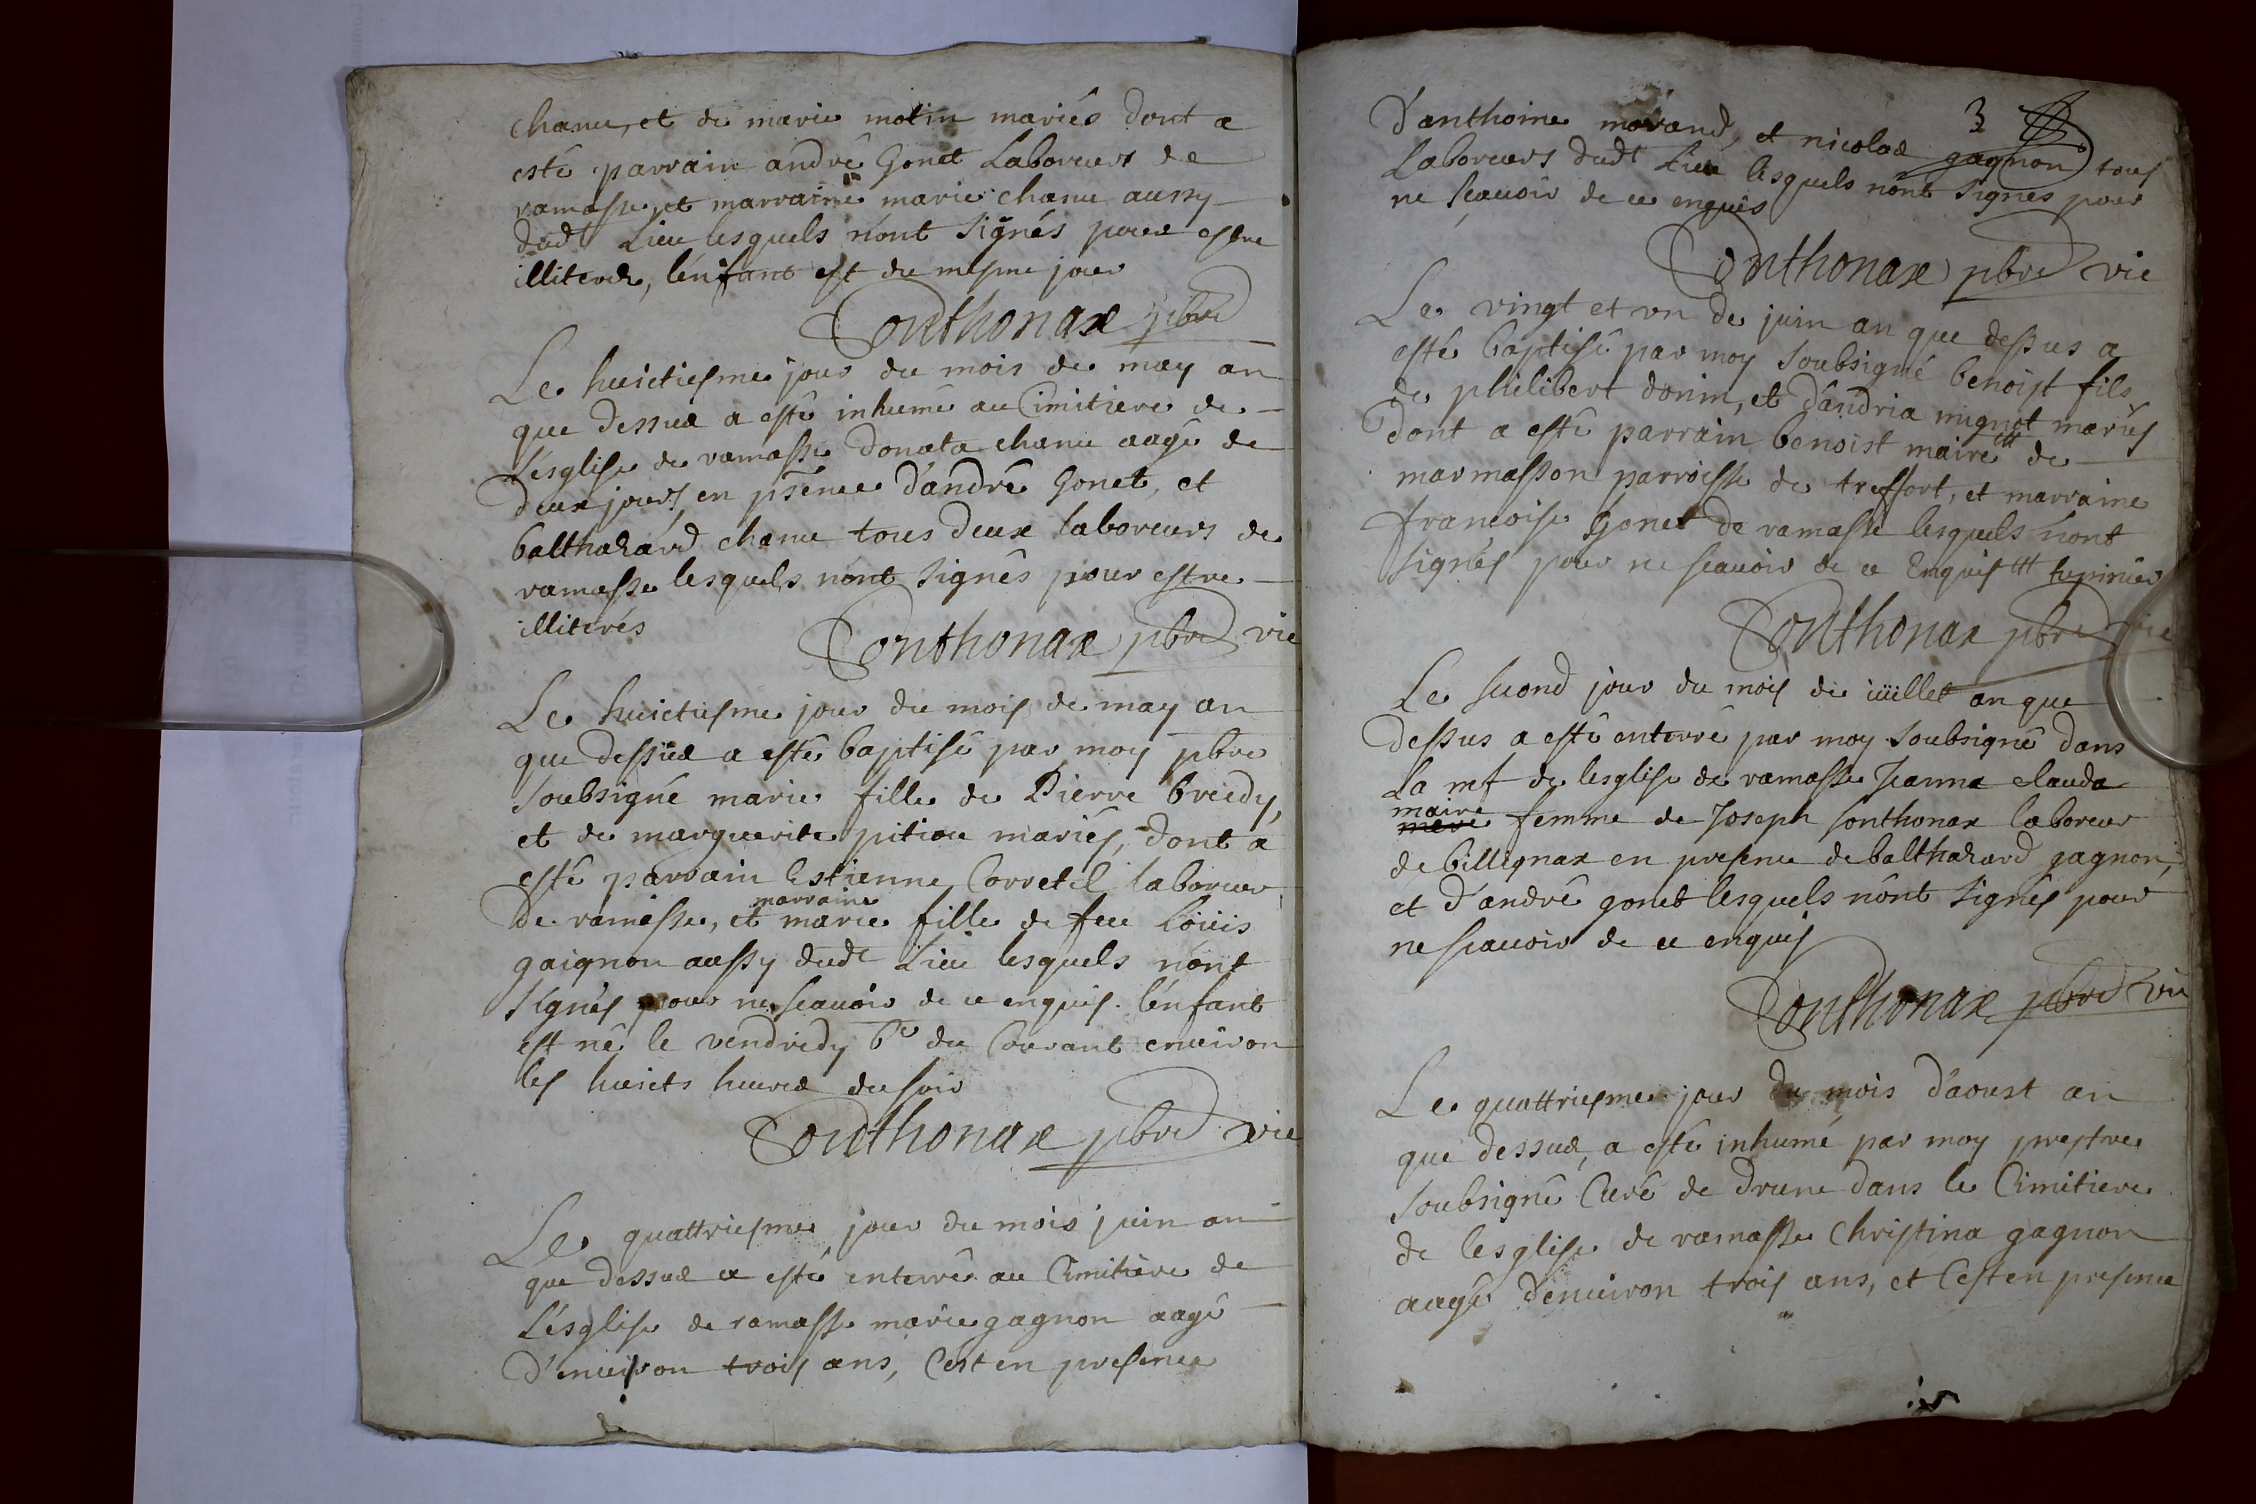 chanu, et de marie molin mariés dont a
esté parrain andré Gonet Laboreurs de
ramasse, et marraine marie chanu aussy
dudt Lieu lesquels n'ont signés pour estre
illiterés, l'enfant est du mesme jour
Sonthonax pbre
Le huictiesme jour du mois de may an
que dessus a esté inhumé au Cimitiere de
L'esglise de ramasse Donata chanu aagé de
deux jours, en pñce d'andré Gonet, et
balthazard chanu tous deux laboreurs de
ramasse lesquels n'ont signés pour estre
illiterés
Sonthonax pbre vic
Le huictiesme jour du mois de may an
que dessus a esté baptisé par moy pbre
soubsigné marie fille de Pierre breidy,
et de marguerite pitiou mariés, dont a
esté parrain Estienne Corretel laboreur
De ramasse, et marraine marie fille de feu Loüis
gaignon aussy dudt Lieu lesquels n'ont
signés pour ne scauoir de ce enquis. l'enfant
est né le vendredy 6e du Courant enuiron
les huicts heures du soir
Sonthonax pbre vic
Le quattriesme jour du mois juin an
que dessus a esté enterré au Cimitiere de
L'esglise de ramasse marie gagnon aagé
D'enuiron trois ans, C'est en presence
3
D'anthoine morand, et nicolas gagnon tous
Laboreurs dudt Lieu lesquels n'ont signés pour
ne scauoir de ce enquis
Sonthonax pbre vic
Le vingt et vn de juin an que dessus a
esté baptisé par moy soubsigné benoist fils
de philibert donin, et d'andria mignot mariés
dont a esté parrain benoist maire ttt de
marmasson parroisse de treffort, et marraine
francoise Gonet de ramasse lesquels n'ont
signés pour ne scauoir de ce Enquis ttt
Sonthonax pbre vic
Le second jour du mois de iüillet an que
dessus a esté enterré par moy soubsigné dans
La nef de lesglise de ramasse Jeanna clauda
maire femme de Joseph sonthonax laboreur
de billignax en presence de balthazard gagnon,
et d'andré gonet lesquels n'ont signés pour
ne scauoir de ce enquis
Sonthonax pbre vic
Le quattriesme jour du mois d'aoust an
que dessus, a esté inhumé par moy prestre
soubsigné Curé de drune dans le Cimitiere
de lesglise de ramasse Christina gagnon
aagé d'enuiron trois ans, et C'est en presence